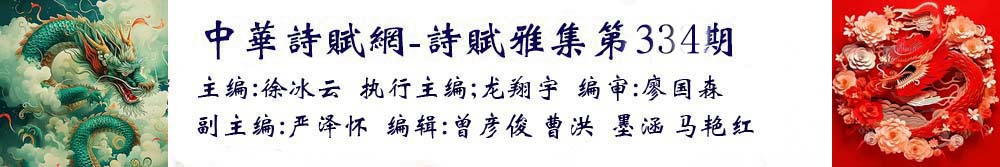 中華詩賦網-詩賦雅集第334期
主编:徐冰云 执行主编;龙翔宇 编审:廖国森
副主编:严泽怀 编辑:曾彦俊 曹洪 墨涵 马艳红